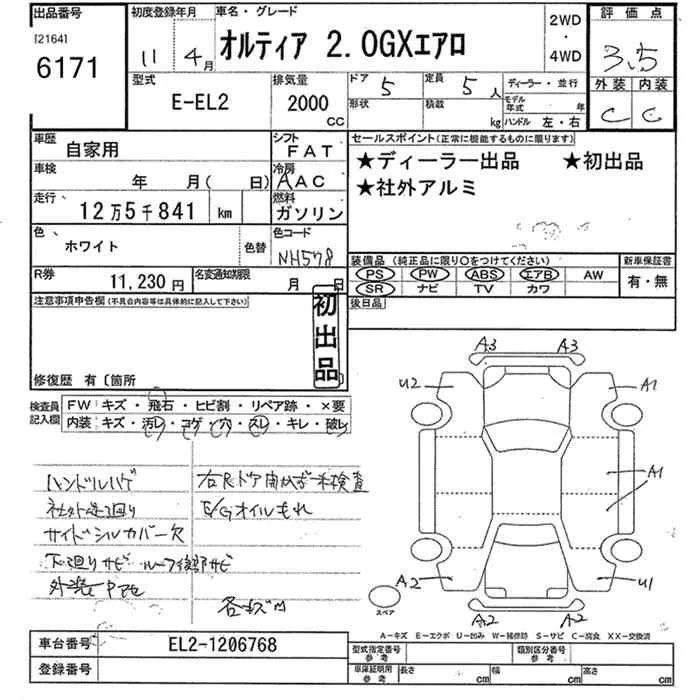 出品番号 初度登録年月 車名・グレード 2WD 評価点
[2164] 6171 11 4月 オルティア 2.0GXエアロ ・ 4WD 3.5
型式 排気量 ドア 5 定員 5人 ディーラー・並行 外装 内装
E-EL2 2000 CC 形状 積載 kg モデル年式 年 C C
ハンドル 左・右
車歴 自家用 シフト FAT セールスポイント(正常に機能するものに限ります)
車検 年 月( 日) 冷房 AAC ★ディーラー出品 ★初出品
走行 12万5千841 km 燃料 ガソリン ★社外アルミ
色 ホワイト 色替 色コード NH578
装備品 (純正品に限り〇をつけてください) 新車保証書
R券 11,230円 名変通知期限 月 日 PS PW ABS エアB AW 有・無
SR ナビ TV カワ
注意事項申告欄(不具合内容等は具体的に記入して下さい) 後日品
初出品
修復歴 有〔箇所
検査員記入欄 FW キズ・飛石・ヒビ割・リペア跡・×要
内装 キズ・汚レ・コゲ・穴・スレ・キレ・破レ
A3 A3
U2 A1
A1
A2 U1
A2 A2
スペア
ハンドルハゲ 右Rドア開かず未検査
E/Gオイルもれ
サイドシルカバー欠
下廻りサビ
各キズU
A-キズ E-エクボ U-凹み W-補修跡 S-サビ C-腐食 XX-交換済
車台番号 EL2-1206768 型式指定番号 参考 類別区分番号 参考
登録番号 車庫証明用 参考 長さ cm 幅 cm 高さ cm